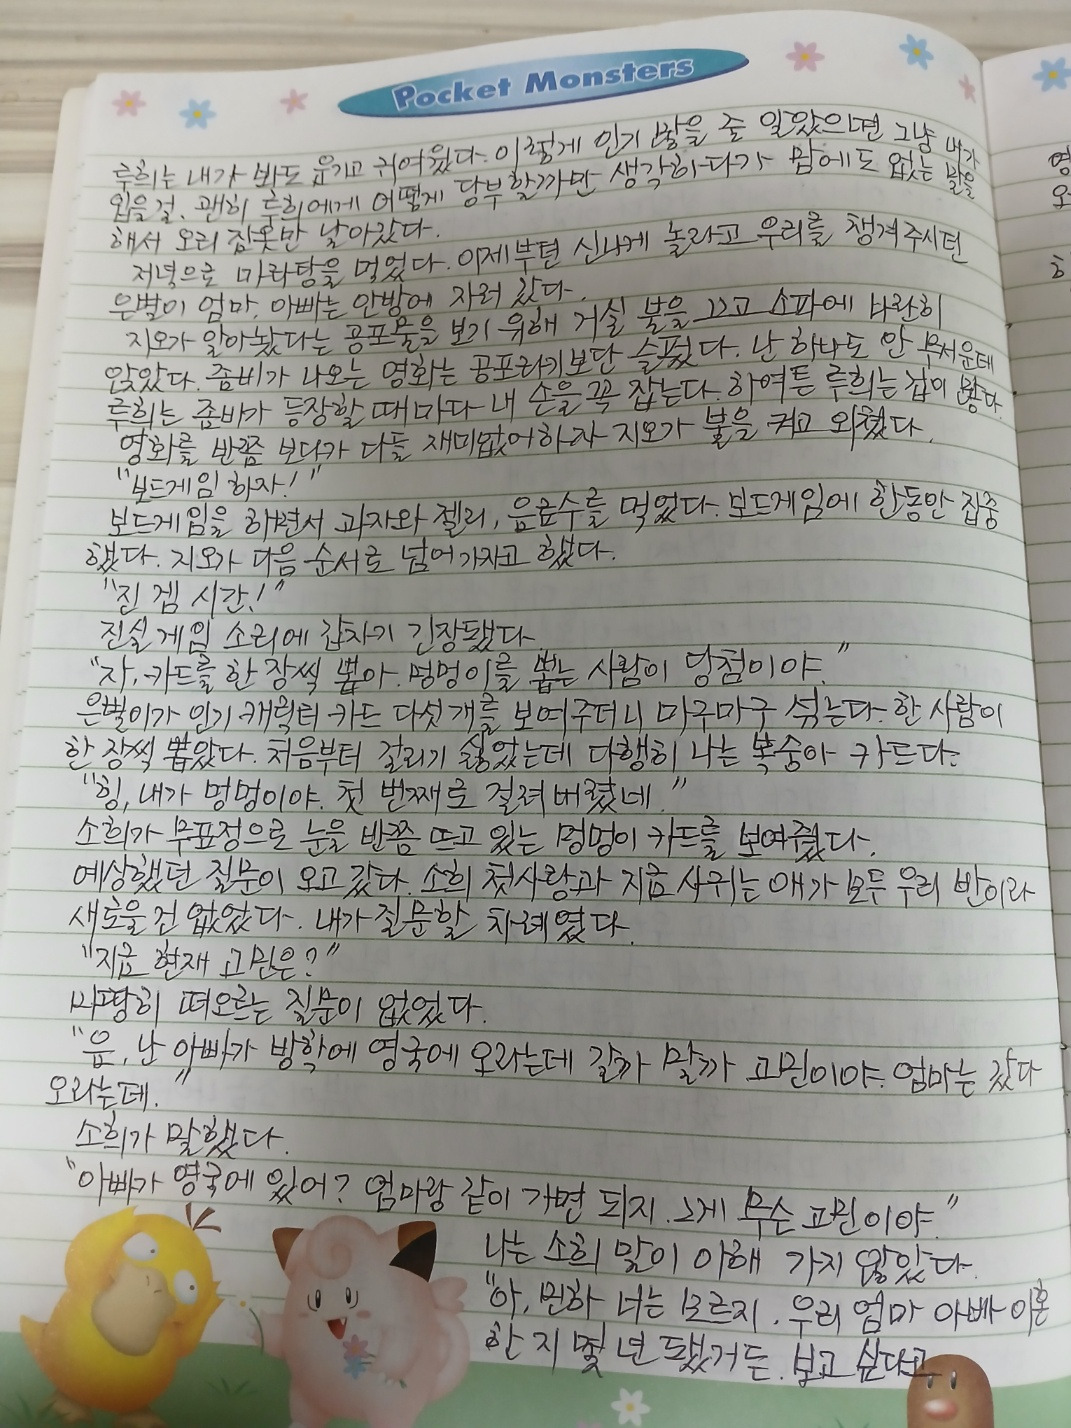 Pocket Monsters
루희는 내가 봐도 웃기고 귀여웠다. 이렇게 인기 많을 줄 알았으면 그냥 내가
입을걸. 괜히 루희에게 어떻게 당부할까만 생각하다가 맘에도 없는 말을
해서 오리 잠옷만 날아갔다.
저녁으로 마라탕을 먹었다. 이제부턴 신나게 놀라고 우리를 챙겨주시던
은별이 엄마, 아빠는 안방에 자러 갔다.
지오가 알아놨다는 공포물을 보기 위해 거실 불을 끄고 소파에 나란히
앉았다. 좀비가 나오는 영화는 공포라기보단 슬펐다. 난 하나도 안 무서운데
루희는 좀비가 등장할 때마다 내 손을 꼭 잡는다. 하여튼 루희는 겁이 많다.
영화를 반쯤 보다가 다들 재미없어하자 지오가 불을 켜고 외쳤다.
"보드게임 하자!"
보드게임을 하면서 과자와 젤리, 음료수를 먹었다. 보드게임에 한동안 집중
했다. 지오가 다음 순서로 넘어가자고 했다.
"진 겜 시간!"
진실 게임 소리에 갑자기 긴장됐다
"자, 카드를 한 장씩 뽑아. 멍멍이를 뽑는 사람이 당첨이야."
은별이가 인기 캐릭터 카드 다섯 개를 보여주더니 마구마구 섞는다. 한 사람이
한 장씩 뽑았다. 처음부터 걸리기 싫었는데 다행히 나는 복숭아 카드다.
"힝, 내가 멍멍이야. 첫 번째로 걸려 버렸네."
소희가 무표정으로 눈을 반쯤 뜨고 있는 멍멍이 카드를 보여줬다.
예상했던 질문이 오고 갔다. 소희 첫사랑과 지금 사귀는 애가 모두 우리 반이라
새로울 건 없었다. 내가 질문할 차례였다.
"지금 현재 고민은?"
마땅히 떠오르는 질문이 없었다.
"음, 난 아빠가 방학에 영국에 오라는데 갈까 말까 고민이야. 엄마는 갔다
오라는데."
소희가 말했다.
"아빠가 영국에 있어? 엄마랑 같이 가면 되지. 그게 무슨 고민이야."
나는 소희 말이 이해 가지 않았다.
"아, 민하 너는 모르지. 우리 엄마 아빠 이혼
한 지 몇 년 됐거든. 보고 싶다고